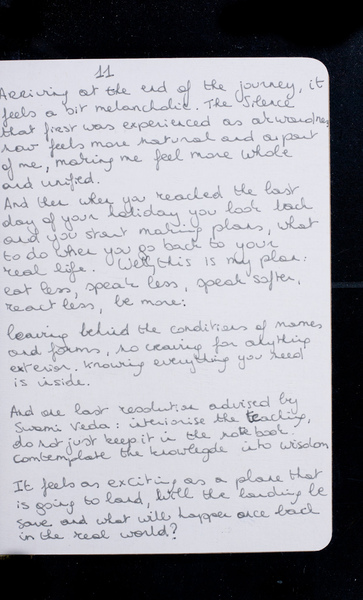 11
Arriving at the end of the journey, it
feels a bit melancholic. The Silence
that first was experienced as akwardness
now feels more natural and as part
of me, making me feel more whole
and unified.
And then when you reached the last
day of your holiday you look back
and you start making plans, what
to do when you go back to your
real life. Well, this is my plan:
eat less, speak less, speak softer,
react less, be more:
leaving behind the conditions of names
and forms, no craving for anything
exterior. Knowing everything you need
is inside.
And one last resolution advised by
Swami Veda: interiorise the teaching,
do not just keep it in the notebook.
Comtemplate the knowlegde into wisdom
It feels as exciting as a plane that
is going to land, will the landing be
save and what will happen once back
in the real world?